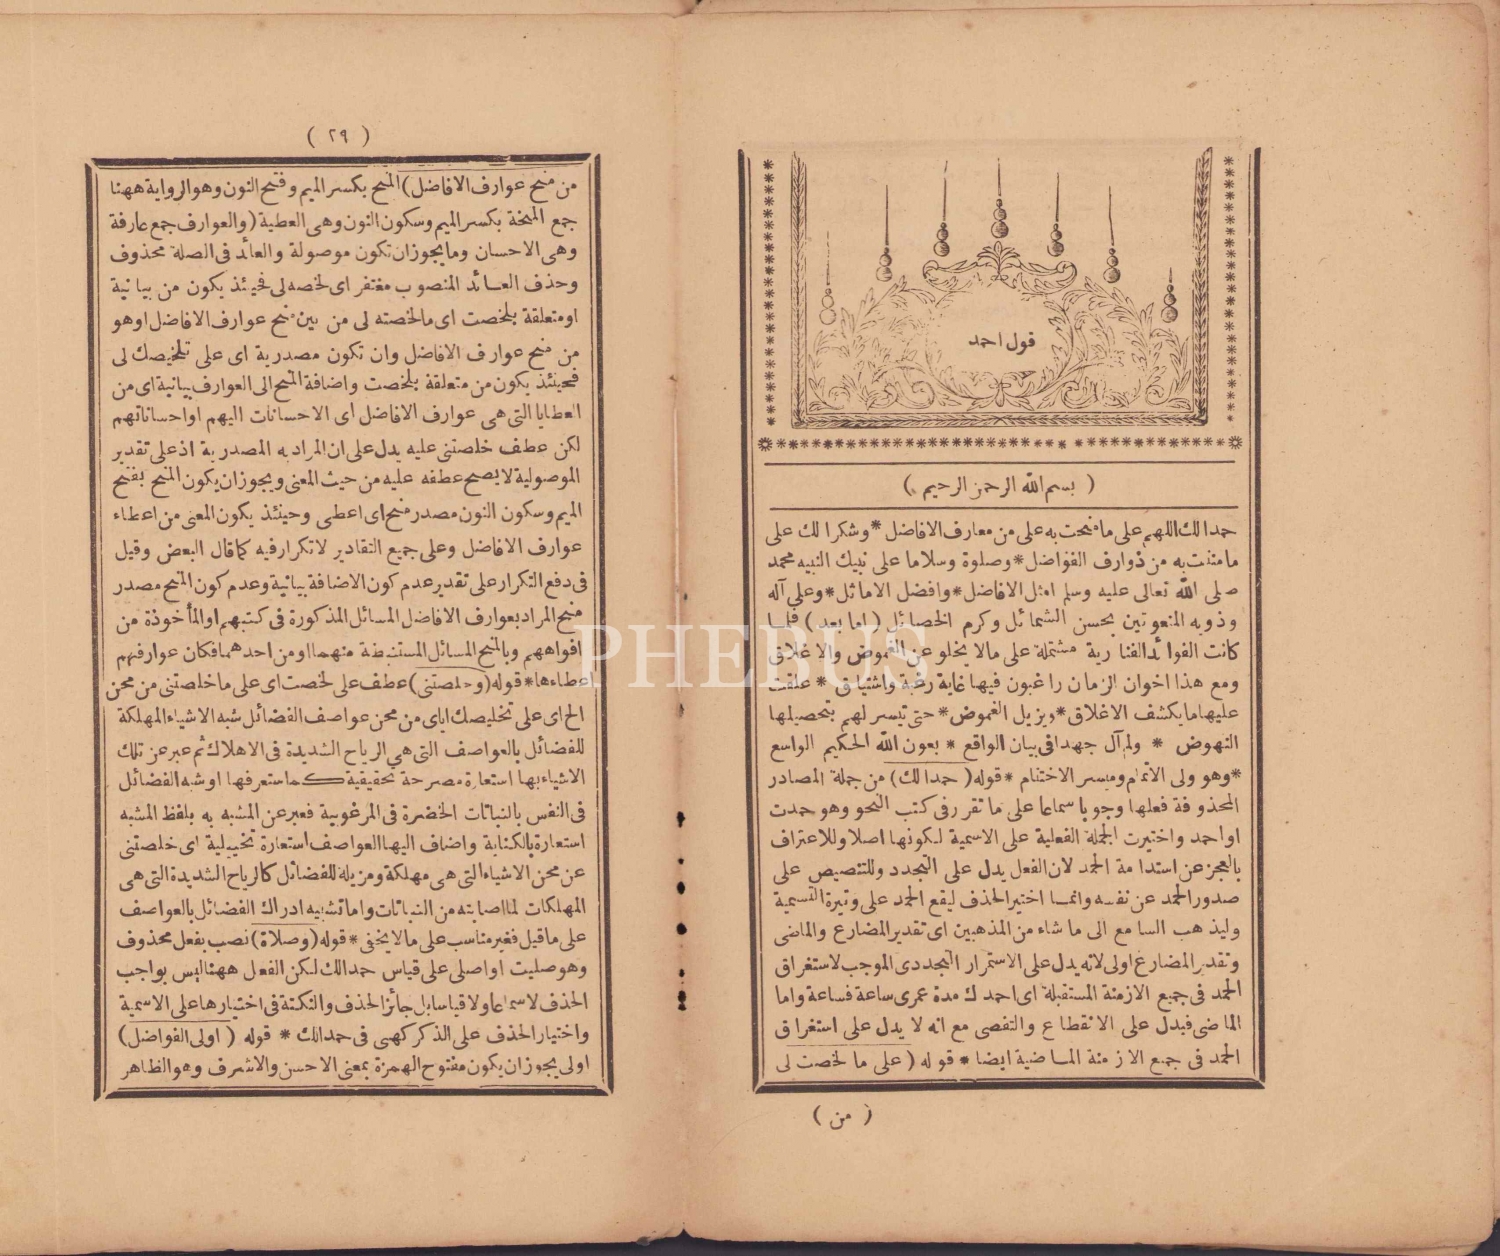 قول احمد
( بسم الله الرحمن الرحيم )
حمدا لك اللهم على ما منحت به على من معارف الافاضل * وشكرا لك على
ما مننت به من ذوارف الفواضل * وصلوة وسلاما على نبيك النبيه محمد
صلى الله تعالى عليه وسلم امثل الافاضل * وافضل الاماثل * وعلى آله
وذويه المنعوتين بحسن الشمائل وكرم الخصائل ( اما بعد ) فلما
كانت الفوائد الفنارية مشتملة على مالا يخلو عن الغموض والاغلاق
ومع هذا اخوان الزمان راغبون فيها غاية رغبة واشتياق * علقت
عليها ما يكشف الاغلاق * ويزيل الغموض * حتى تيسر لهم بتحصيلها
النهوض * ولم آل جهدا فى بيان الواقع * بعون الله الحكيم الواسع
* وهو ولى الاتمام وميسر الاختتام * قوله ( حمدا لك ) من جملة المصادر
المحذوفة فعلها وجوبا سماعا على ما تقرر فى كتب النحو وهو حمدت
او احمد واختيرت الجملة الفعلية على الاسمية لكونها اصلا وللاعتراف
بالعجز عن استدامة الحمد لان الفعل يدل على التجدد وللتنصيص على
صدور الحمد عن نفسه وانما اختير الحذف ليقع الحمد على وتيرة التسمية
وليذهب السامع الى ما شاء من المذهبين اى تقدير المضارع والماضى
وتقدير المضارع اولى لانه يدل على الاستمرار التجددى الموجب لاستغراق
الحمد فى جميع الازمنة المستقبلة اى احمدك مدة عمرى ساعة فساعة واما
الماضى فيدل على الانقطاع والتفصى مع انه لا يدل على استغراق
الحمد فى جميع الازمنة الماضية ايضا * قوله ( على ما لخصت لى
( من )
( ٢٩ )
من منح عوارف الافاضل ) المنح بكسر الميم وفتح النون وهو الرواية ههنا
جمع المنحة بكسر الميم وسكون النون وهى العطية ( والعوارف جمع عارفة
وهى الاحسان وما يجوز ان تكون موصولة والعائد فى الصلة محذوف
وحذف العائد المنصوب مغتفر اى لخصه لى فحينئذ يكون من بيانية
او متعلقة بلخصت اى ما لخصته لى من بين منح عوارف الافاضل او هو
من منح عوارف الافاضل وان تكون مصدرية اى على تلخيصك لى
فحينئذ يكون من متعلقة بلخصت واضافة المنح الى العوارف بيانية اى من
العطايا التى هى عوارف الافاضل اى الاحسانات اليهم او احساناتهم
لكن عطف خلصتنى عليه يدل على ان المراد به المصدرية اذ على تقدير
الموصولية لا يصح عطفه عليه من حيث المعنى ويجوز ان يكون المنح بفتح
الميم وسكون النون مصدر منح اى اعطى وحينئذ يكون المعنى من اعطاء
عوارف الافاضل وعلى جميع التقادير لا تكرار فيه كما قال البعض وقيل
فى دفع التكرار على تقدير عدم كون الاضافة بيانية وعدم كون المنح مصدر
منح المراد بعوارف الافاضل المسائل المذكورة فى كتبهم او المأخوذة من
افواههم وبالمنح المسائل المستنبطة منهما او من احدهما فكان عوارفهم
اعطاءها * قوله ( وخلصتنى ) عطف على لخصت اى على ما خلصتنى من محن
الخ اى على تخليصك اياى من محن عواصف الفضائل شبه الاشياء المهلكة
للفضائل بالعواصف التى هى الرياح الشديدة فى الاهلاك ثم عبر عن تلك
الاشياء بها استعارة مصرحة تحقيقية كما ستعرفها او شبه الفضائل
فى النفس بالنباتات الخضرة فى المرغوبية فعبر عن المشبه به بلفظ المشبه
استعارة بالكناية واضاف اليها العواصف استعارة تخييلية اى خلصتنى
عن محن الاشياء التى هى مهلكة ومزيلة للفضائل كالرياح الشديدة التى هى
المهلكات لما اصابته من النباتات واما تشبيه ادراك الفضائل بالعواصف
على ما قيل فغير مناسب على مالا يخفى * قوله ( وصلاة ) نصب بفعل محذوف
وهو صليت او اصلى على قياس حمدا لك لكن الفعل ههنا ليس بواجب
الحذف لا سماعا ولا قياسا بل جائز الحذف والنكتة فى اختيارها على الاسمية
واختيار الحذف على الذكر كهى فى حمدا لك * قوله ( اولى الفواضل )
اولى يجوز ان يكون مفتوح الهمزة بمعنى الاحسن والاشرف وهو الظاهر
PHEBUS